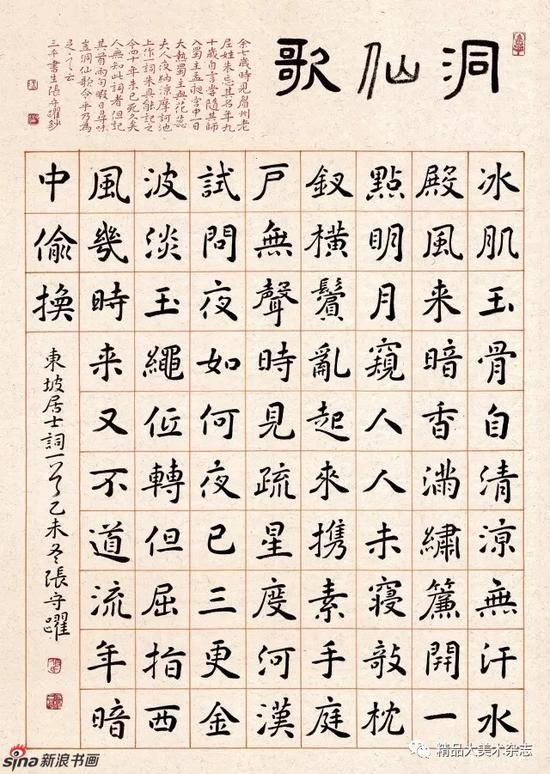 洞仙歌
余七歲時見眉州老
尼姓朱忘其名年九
十歲自言嘗隨其師
入蜀主孟昶宮中一日
大熱蜀主與花蕊
夫人夜納涼摩訶池
上作詞朱具能記之
今四十年朱已死久矣
人無知此詞者但記
其首兩句暇日尋味
豈洞仙歌令乎乃為
足之云
三平書生張守躍鈔
冰肌玉骨自清涼無汗水
殿風来暗香滿繡簾開一
點明月窺人人未寢敧枕
釵橫鬢亂起來携素手庭
戶無聲時見疏星度河漢
試問夜如何夜已三更金
波淡玉繩低轉但屈指西
風幾時来又不道流年暗
中偷換
東坡居士詞一首乙未冬張守躍
sina新浪书画
精品大美术杂志